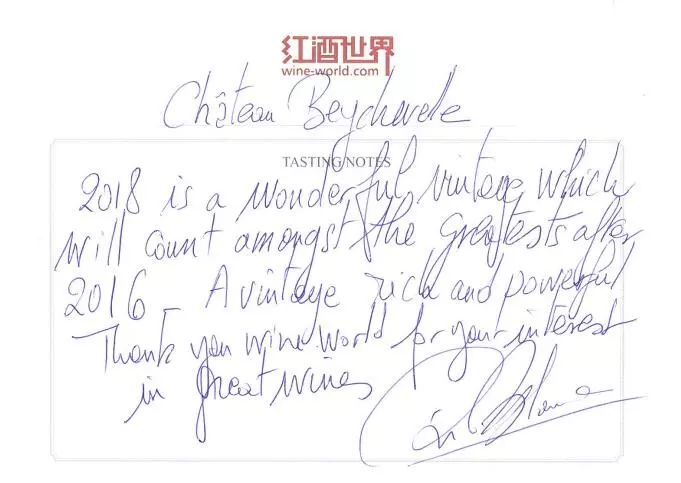 红酒世界
wine-world.com
Château Beychevelle
TASTING NOTES
2018 is a wonderful vintage which
will count amongst the greatests after
2016 - A vintage rich and powerful
Thank you wine world for your interest
in great wines